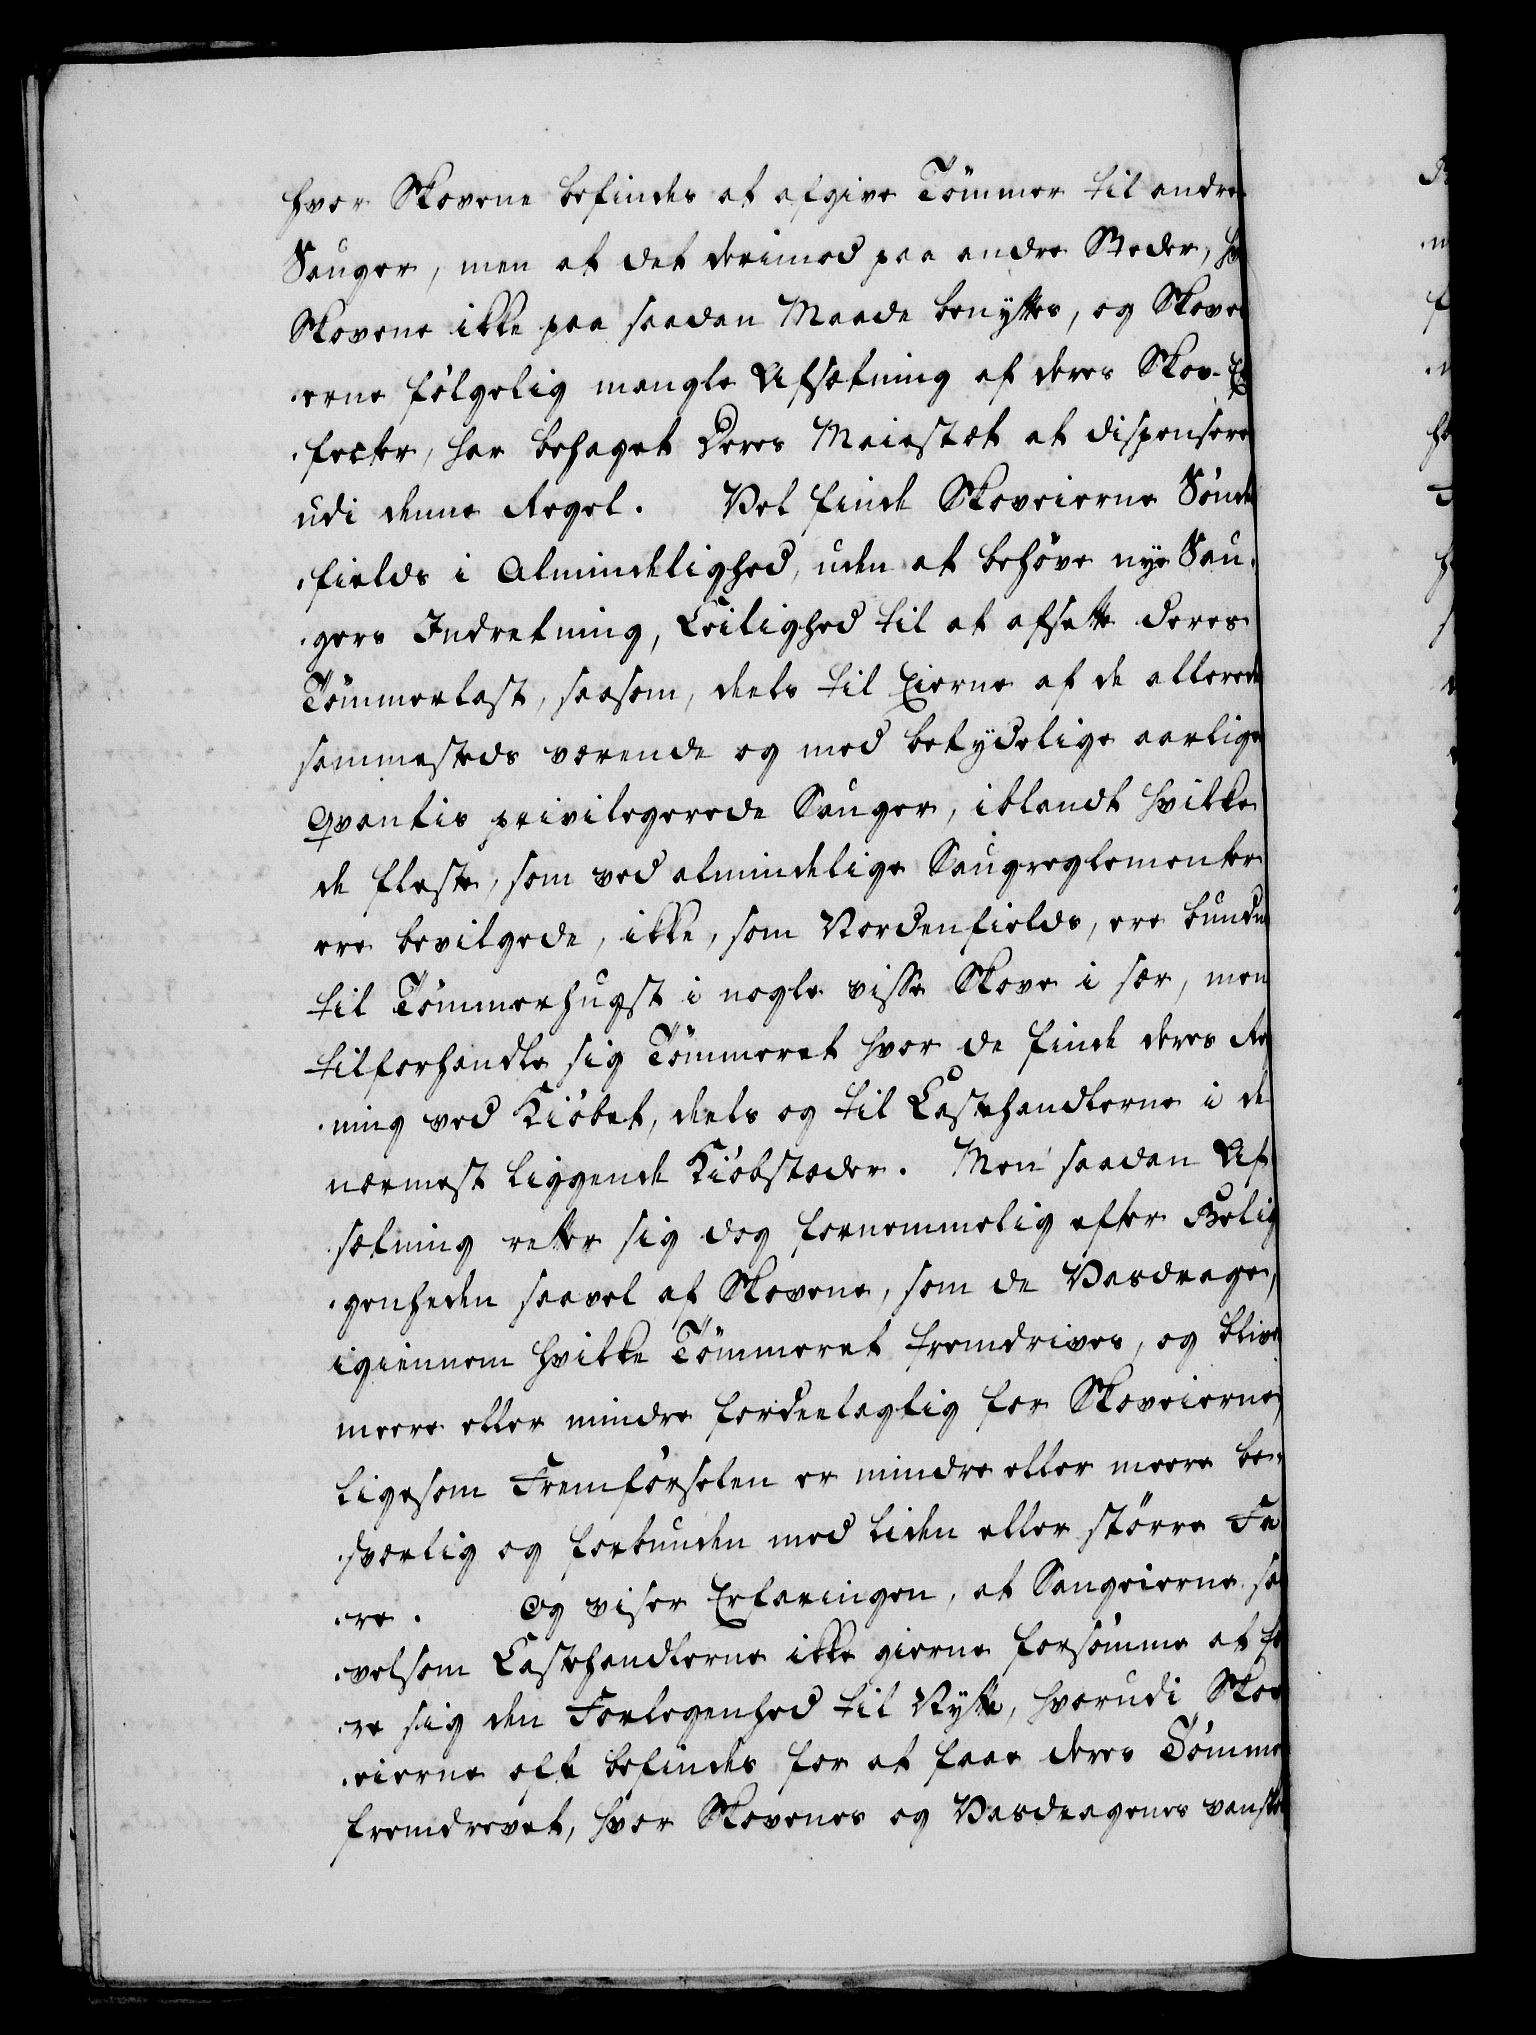 hvor Skovene befindes at afgive Tömmer til andre
Sauger, men at det derimod paa andre Steder, hv
Skovene ikke paa saadan Maade benyttes, og Skovei
erne fölgelig mangle Afsætning af deres Skov-Ef
fecter, har behaget Deres Maiestæt at dispensere
udi denne Regel. Vel finde Skoveierne Sönden
fields i Almindelighed, uden at behöve nye Sau-
gers Indretning, Leilighed til at afsætte deres
Tömmerlast, saasom, deels til Eierne af de allerede
sammesteds værende og med betydelige aarlige
Qvantis privilegerede Sauger, iblandt hvilke
de fleste, som ved almindelige Saugreglementer
ere bevilgede, ikke, som Nordenfields, ere bundne
til Tömmerhugst i nogle visse Skove i sær, men
tilforhandle sig Tömmeret hvor de finde deres Re
ning ved Kiöbet, deels og til Lasthandlerne i de
nærmest liggende Kiöbstæder. Men saadan Af
sætning retter sig dog fornemmelig efter Belig
genheden saavel af Skovene, som de Vasdrage,
igiennem hvilke Tömmeret fremdrives, og blive
meere eller mindre fordeelagtig for Skoveierne,
ligesom Fremförselen er mindre eller meere be-
sværlig og forbunden med liden eller större Fa
re. Og viser Erfaringen, at Saugeierne saa
velsom Lasthandlerne ikke gierne forsömme at fö
re sig den Forlegenhed til Nytte, hvorudi Skov
eierne oft befindes for at faae deres Tömmer
fremdrevet, hvor Skovenes og Vasdragenes vanske